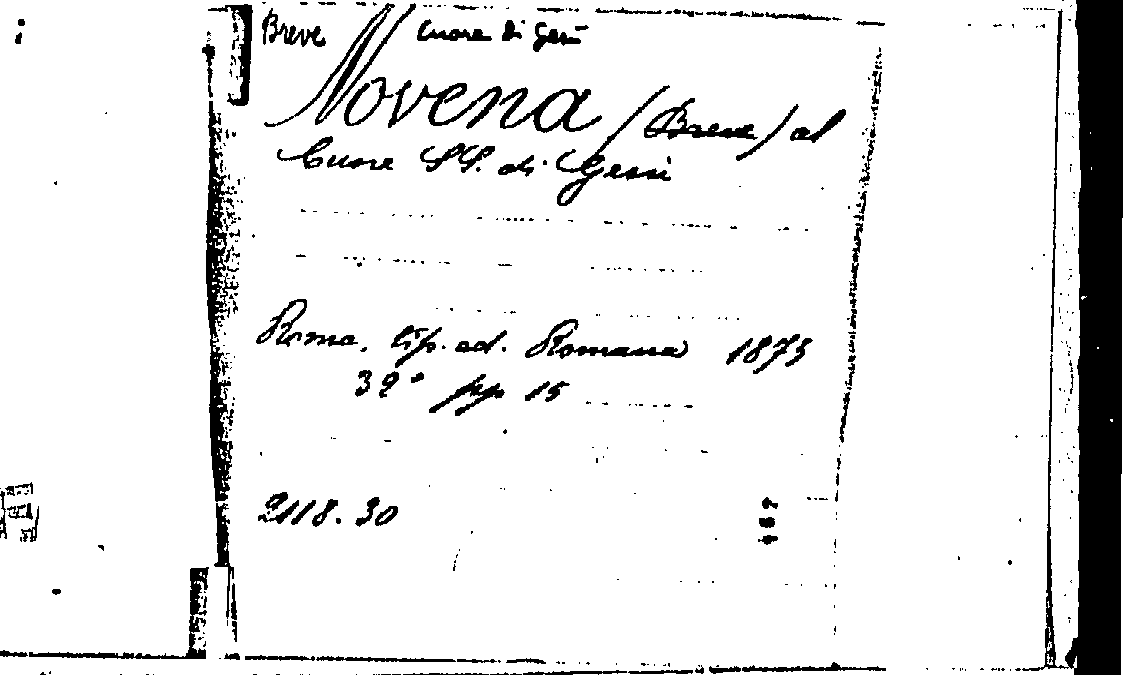 Breve // Cuore di Gesù
Novena / (Breve) al
Cuore SS. di Gesù
Roma, tip. ed. Romana 1873
32° pp 15
2118.30
167